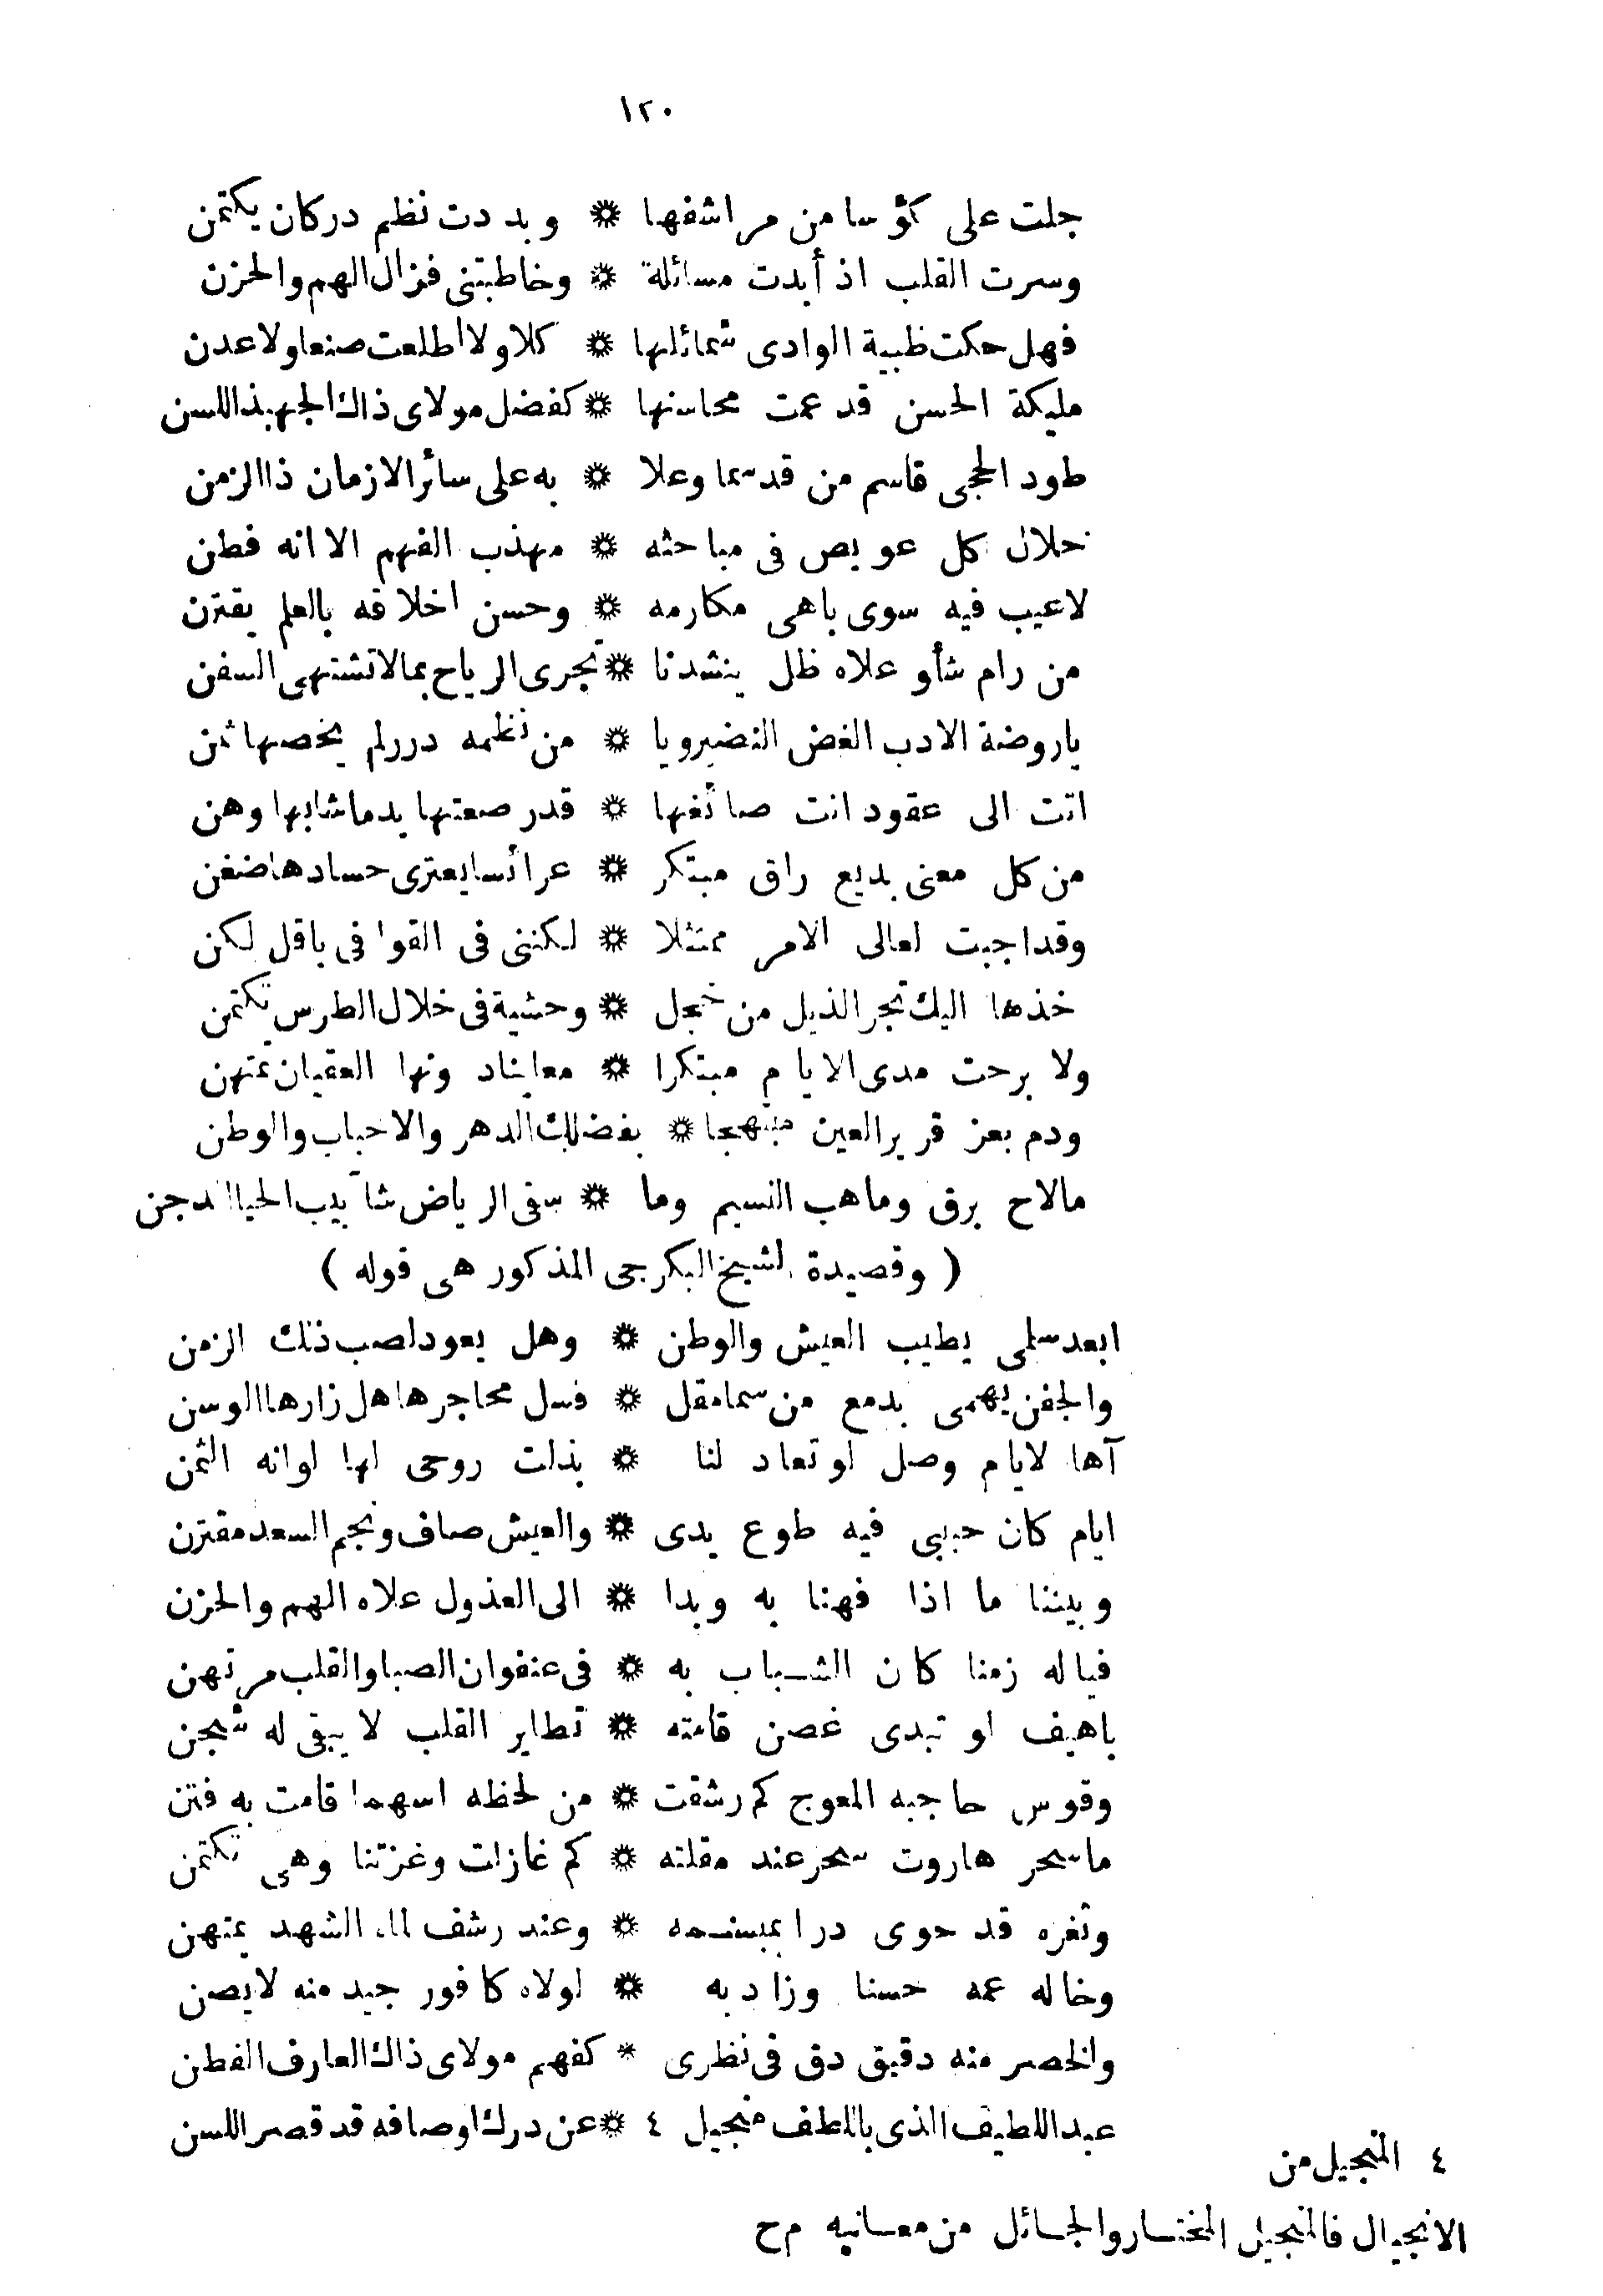 ١٢٠
جلت على كؤسا من مراشفها * وبددت نظم دركان يكتمن
وسرت القلب اذ أبدت مسائلة * وخاطبتنى فزال الهم والحزن
فهل حكت ظبية الوادى شمائلها * كلا ولا اطلعت صنعا ولا عدن
مليكة الحسن قد عمت محاسنها * كفضل مولاى ذاك الجهبذ اللسن
طود الحجى قاسم من قد سما وعلا * به على سائر الازمان ذا الزمن
حلال كل عويص فى مباحثه * مهذب الفهم الا انه فطن
لاعيب فيه سوى باهى مكارمه * وحسن اخلاقه بالعلم يقترن
من رام شأو علاه ظل ينشدنا * تجرى الرياح بما لا تشتهى السفن
ياروضة الادب الغض النضير ويا * من نظمه درر لم يحصها ثمن
اتت الى عقود انت صائغها * قدر صعتها يد ماشابها وهن
من كل معنى بديع راق مبتكر * عرائسا يعترى حسادها ضغن
وقد اجبت لعالى الامر ممتثلا * لكننى فى القوافى باقل لكن
خذها اليك تجر الذيل من خجل * وحشية فى خلال الطرس تكتمن
ولا برحت مدى الايام مبتكرا * معاينا دونها العقيان تمتهن
ودم بعز قرير العين مبتهجا * بفضلك الدهر والاحباب والوطن
مالاح برق وماهب النسيم وما * سقى الرياض شآبيب الحيا الدجن
( وقصيدة الشيخ البكرجى المذكور هى قوله )
ابعد سلمى يطيب العيش والوطن * وهل يعود لصب ذلك الزمن
والجفن يهمى بدمع من سما مقل * فسل محاجرها هل زارها الوسن
آها لايام وصل لو تعاد لنا * بذلت روحى لها لو انه الثمن
ايام كان حبيبى فيه طوع يدى * والعيش صاف ونجم السعد مقترن
وبيننا ما اذا فهنا به وبدا * الى العذول علاه الهم والحزن
فيا له زمنا كان الشباب به * فى عنفوان الصبا والقلب مرتهن
باهيف لو تبدى غصن قامته * تطاير القلب لا يبقى له شجن
وقوس حاجبه المعوج كم رشقت * من لحظه اسهما قامت به فتن
ما سحر هاروت سحر عند مقلته * كم غازلت وغزتنا وهى تكتمن
وثغره قد حوى درا بمبسمه * وعند رشف لماء الشهد يمتهن
وخاله عمه حسنا وزاد به * لولاه كافور جيد منه لايصن
والخصر منه دقيق دق فى نظرى * كفهم مولاى ذاك العارف الفطن
عبد اللطيف الذى باللطف منجيل ٤ * عن درك اوصافه قد قصر اللسن
٤ المنجيل من
الانجيال فالمنجيل المختار والجائل من معانيه م ح